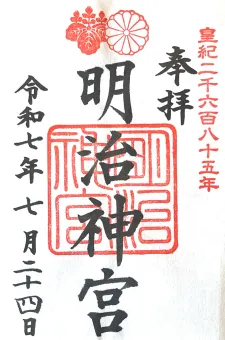 皇紀二千六百八十五年
奉拝
明治神宮
明治神宮
令和七年七月二十四日